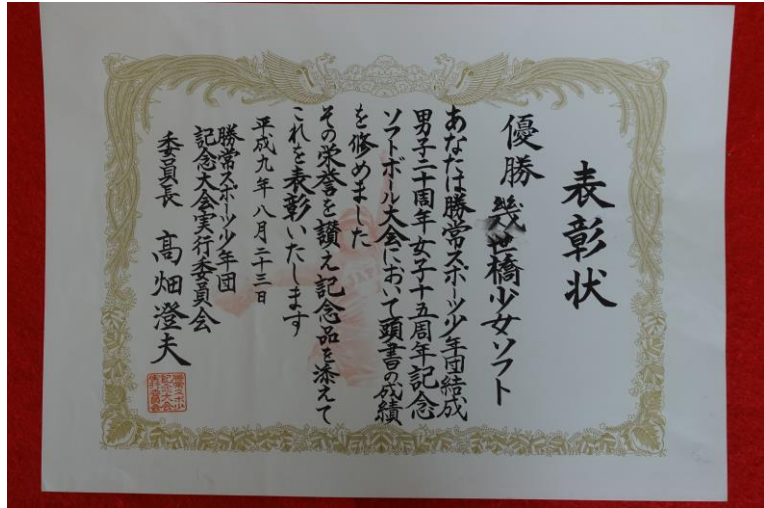 表彰状
優勝 幾世橋少女ソフト
あなたは勝常スポーツ少年団結成
男子二十周年女子十五周年記念
ソフトボール大会において頭書の成績
を修めました
その栄誉を讃え記念品を添えて
これを表彰いたします
平成九年八月二十三日
勝常スポーツ少年団
記念大会実行委員会
委員長 高畑澄夫